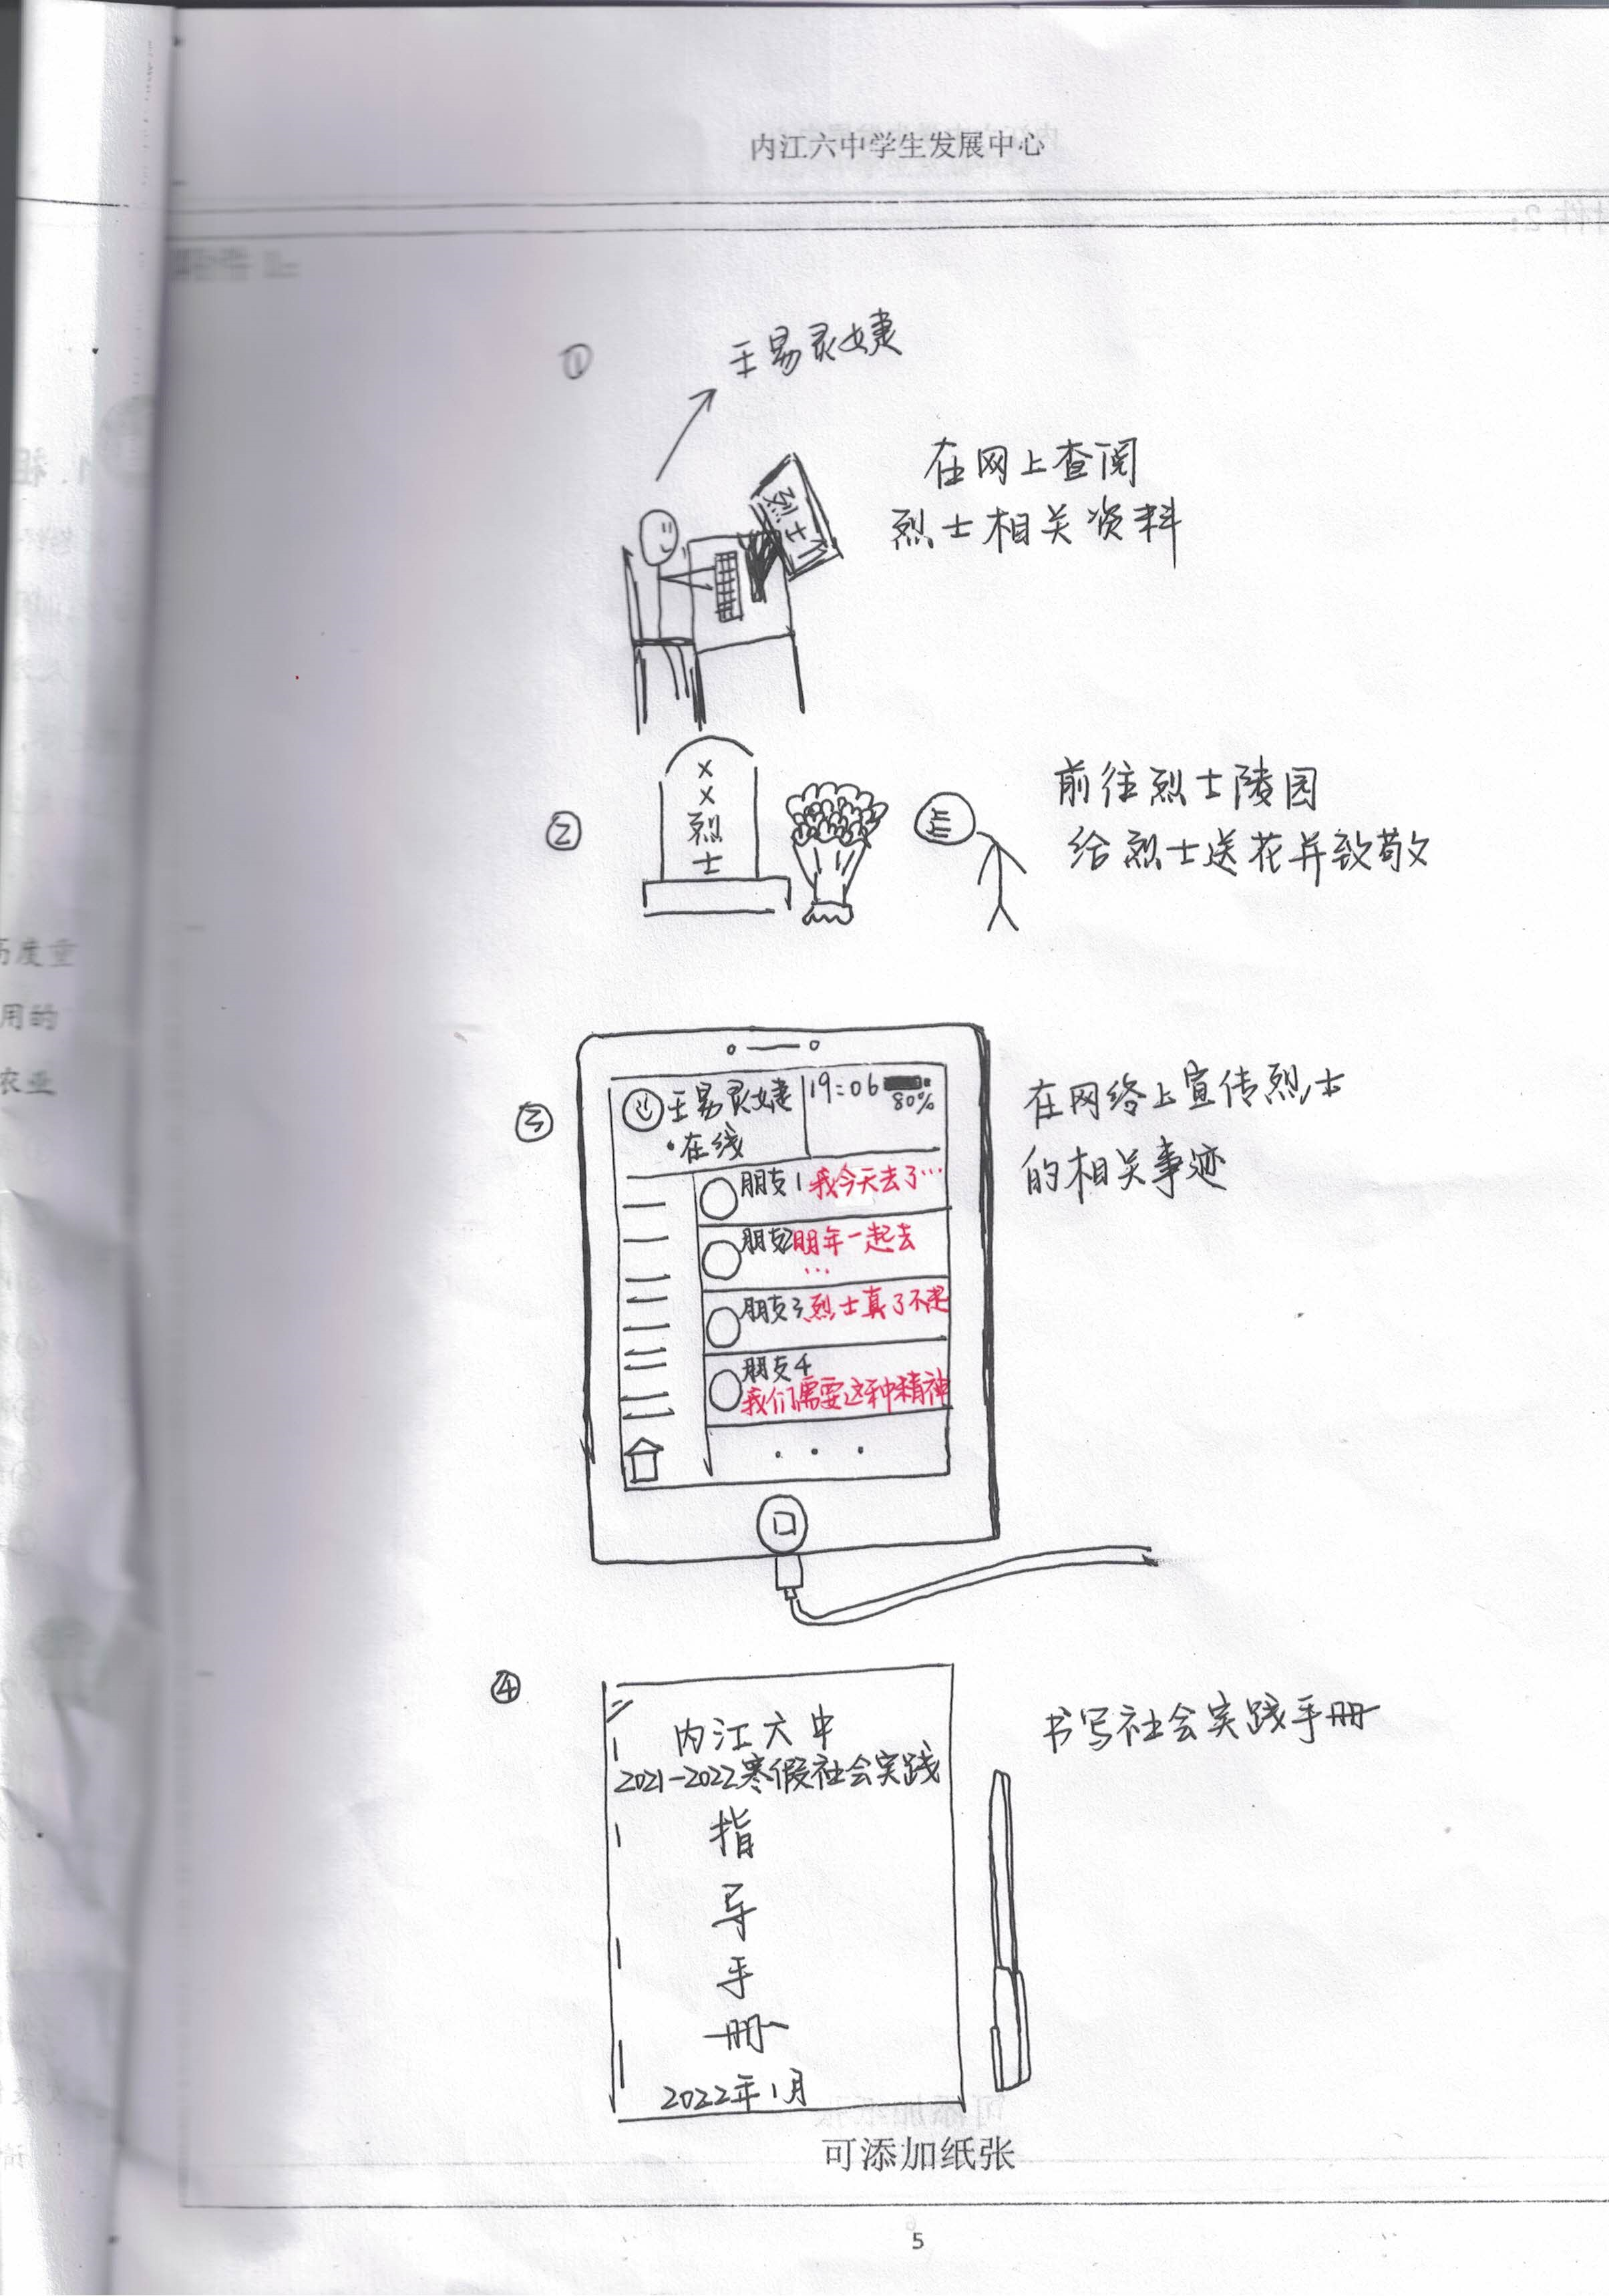 内江六中学生发展中心
①
王易灵婕
在网上查阅
烈士相关资料
烈士
②
××烈士
前往烈士陵园
给烈士送花并致敬
③
王易灵婕
·在线
19:06
80%
朋友1 我今天去了…
朋友2 明年一起去
…
朋友3 烈士真了不起
朋友4
我们需要这种精神
在网络上宣传烈士
的相关事迹
④
内江六中
2021-2022寒假社会实践
指
导
手
册
2022年1月
书写社会实践手册
可添加纸张
5
高度重
用的
农业